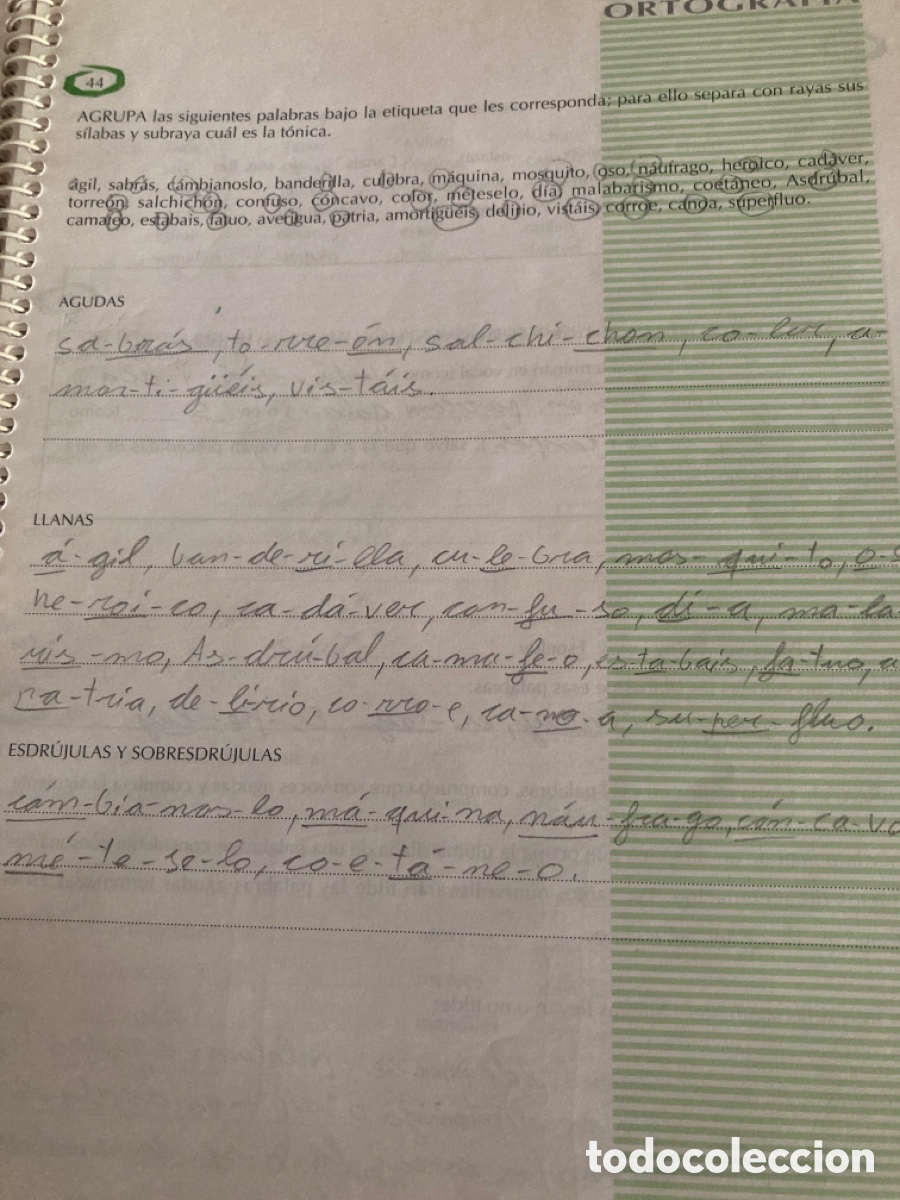 ORTOGRAFÍA
44
AGRUPA las siguientes palabras bajo la etiqueta que les corresponda; para ello separa con rayas sus
sílabas y subraya cuál es la tónica.
ágil, sabrás, cámbianoslo, banderilla, culebra, máquina, mosquito, oso, náufrago, heroico, cadáver,
torreón, salchichón, confuso, cóncavo, color, méteselo, día, malabarismo, coetáneo, Asdrúbal,
camafeo, estabais, fatuo, averigua, patria, amortigüéis, delirio, vistáis, corroe, canoa, superfluo.
AGUDAS
sa-brás, to-rre-ón, sal-chi-chon, co-lor, a-
mor-ti-güéis, vis-táis.
LLANAS
á-gil, ban-de-ri-lla, cu-le-bra, mos-qui-to, o-s
he-roi-co, ca-dá-ver, con-fu-so, dí-a, ma-la
ris-mo, As-drú-bal, ca-ma-fe-o, es-ta-bais, fa-tuo, a
pa-tria, de-li-rio, co-rro-e, ca-no-a, su-per-fluo.
ESDRÚJULAS Y SOBRESDRÚJULAS
cám-bia-nos-lo, má-qui-na, náu-fra-go, cón-ca-vo
mé-te-se-lo, co-e-tá-ne-o.
todocoleccion